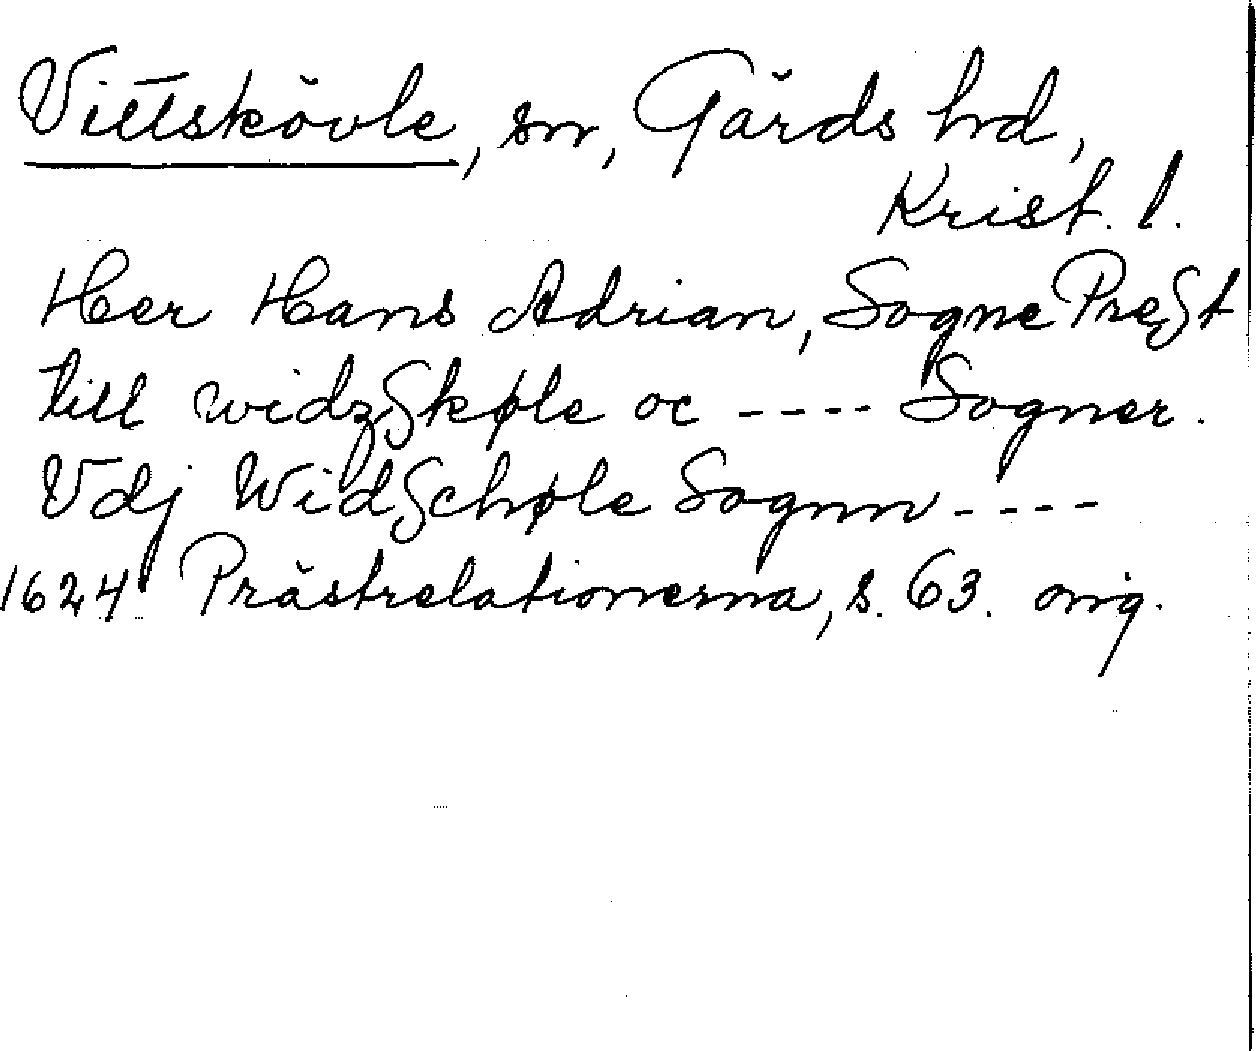 Vittskövle, sn, Gärds hd,
Krist. l.
Her Hans Adrian, Sogne Prest
till widzskøle oc ---- Sogner.
Vdj Widschøle Sognn ----
1624 Prästrelationerna, s. 63. orig.